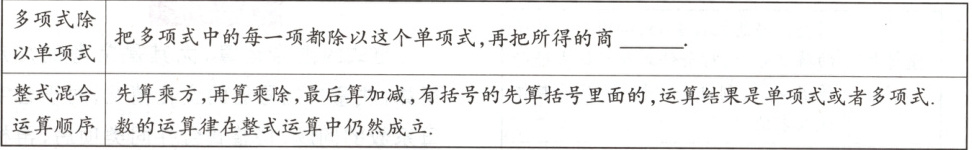 多项式除
以单项式
把多项式中的每一项都除以这个单项式,再把所得的商 ______.
整式混合
运算顺序
先算乘方,再算乘除,最后算加减,有括号的先算括号里面的,运算结果是单项式或者多项式.
数的运算律在整式运算中仍然成立.